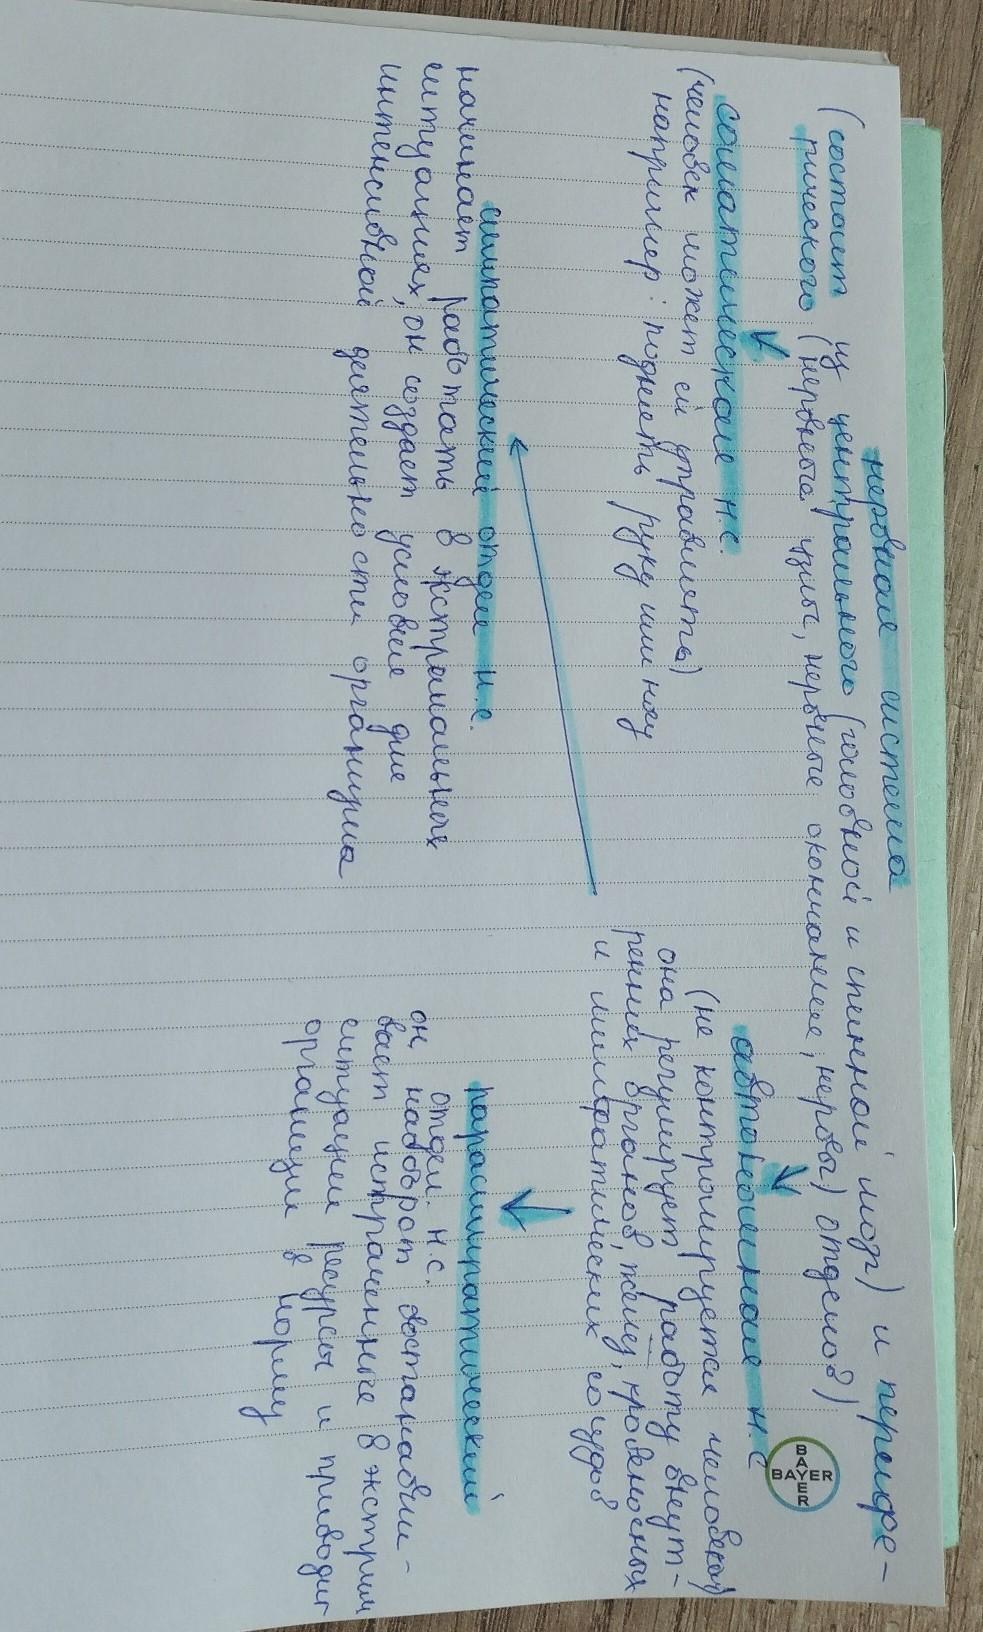 нервная система
(состоит из центрального (головной и спинной мозг) и перифе-
рического (нервные узлы, нервные окончания, нервы) отделов)
соматическая н.с.
(человек может ей управлять)
например: поднять руку или ногу
автономная н.с
(не контролируется человеком)
она регулирует работу внут-
ренних органов, желез, кровеносных
и лимфатических сосудов
симпатический отдел н.с.
начинает работать в экстремальных
ситуациях, он создает условия для
интенсивной деятельности организма
парасимпатический
отдел н.с.
он, наоборот восстанавли-
вает истраченные в экстрим
ситуации ресурсы и приводит
организм в норму
BAYER
BAYER